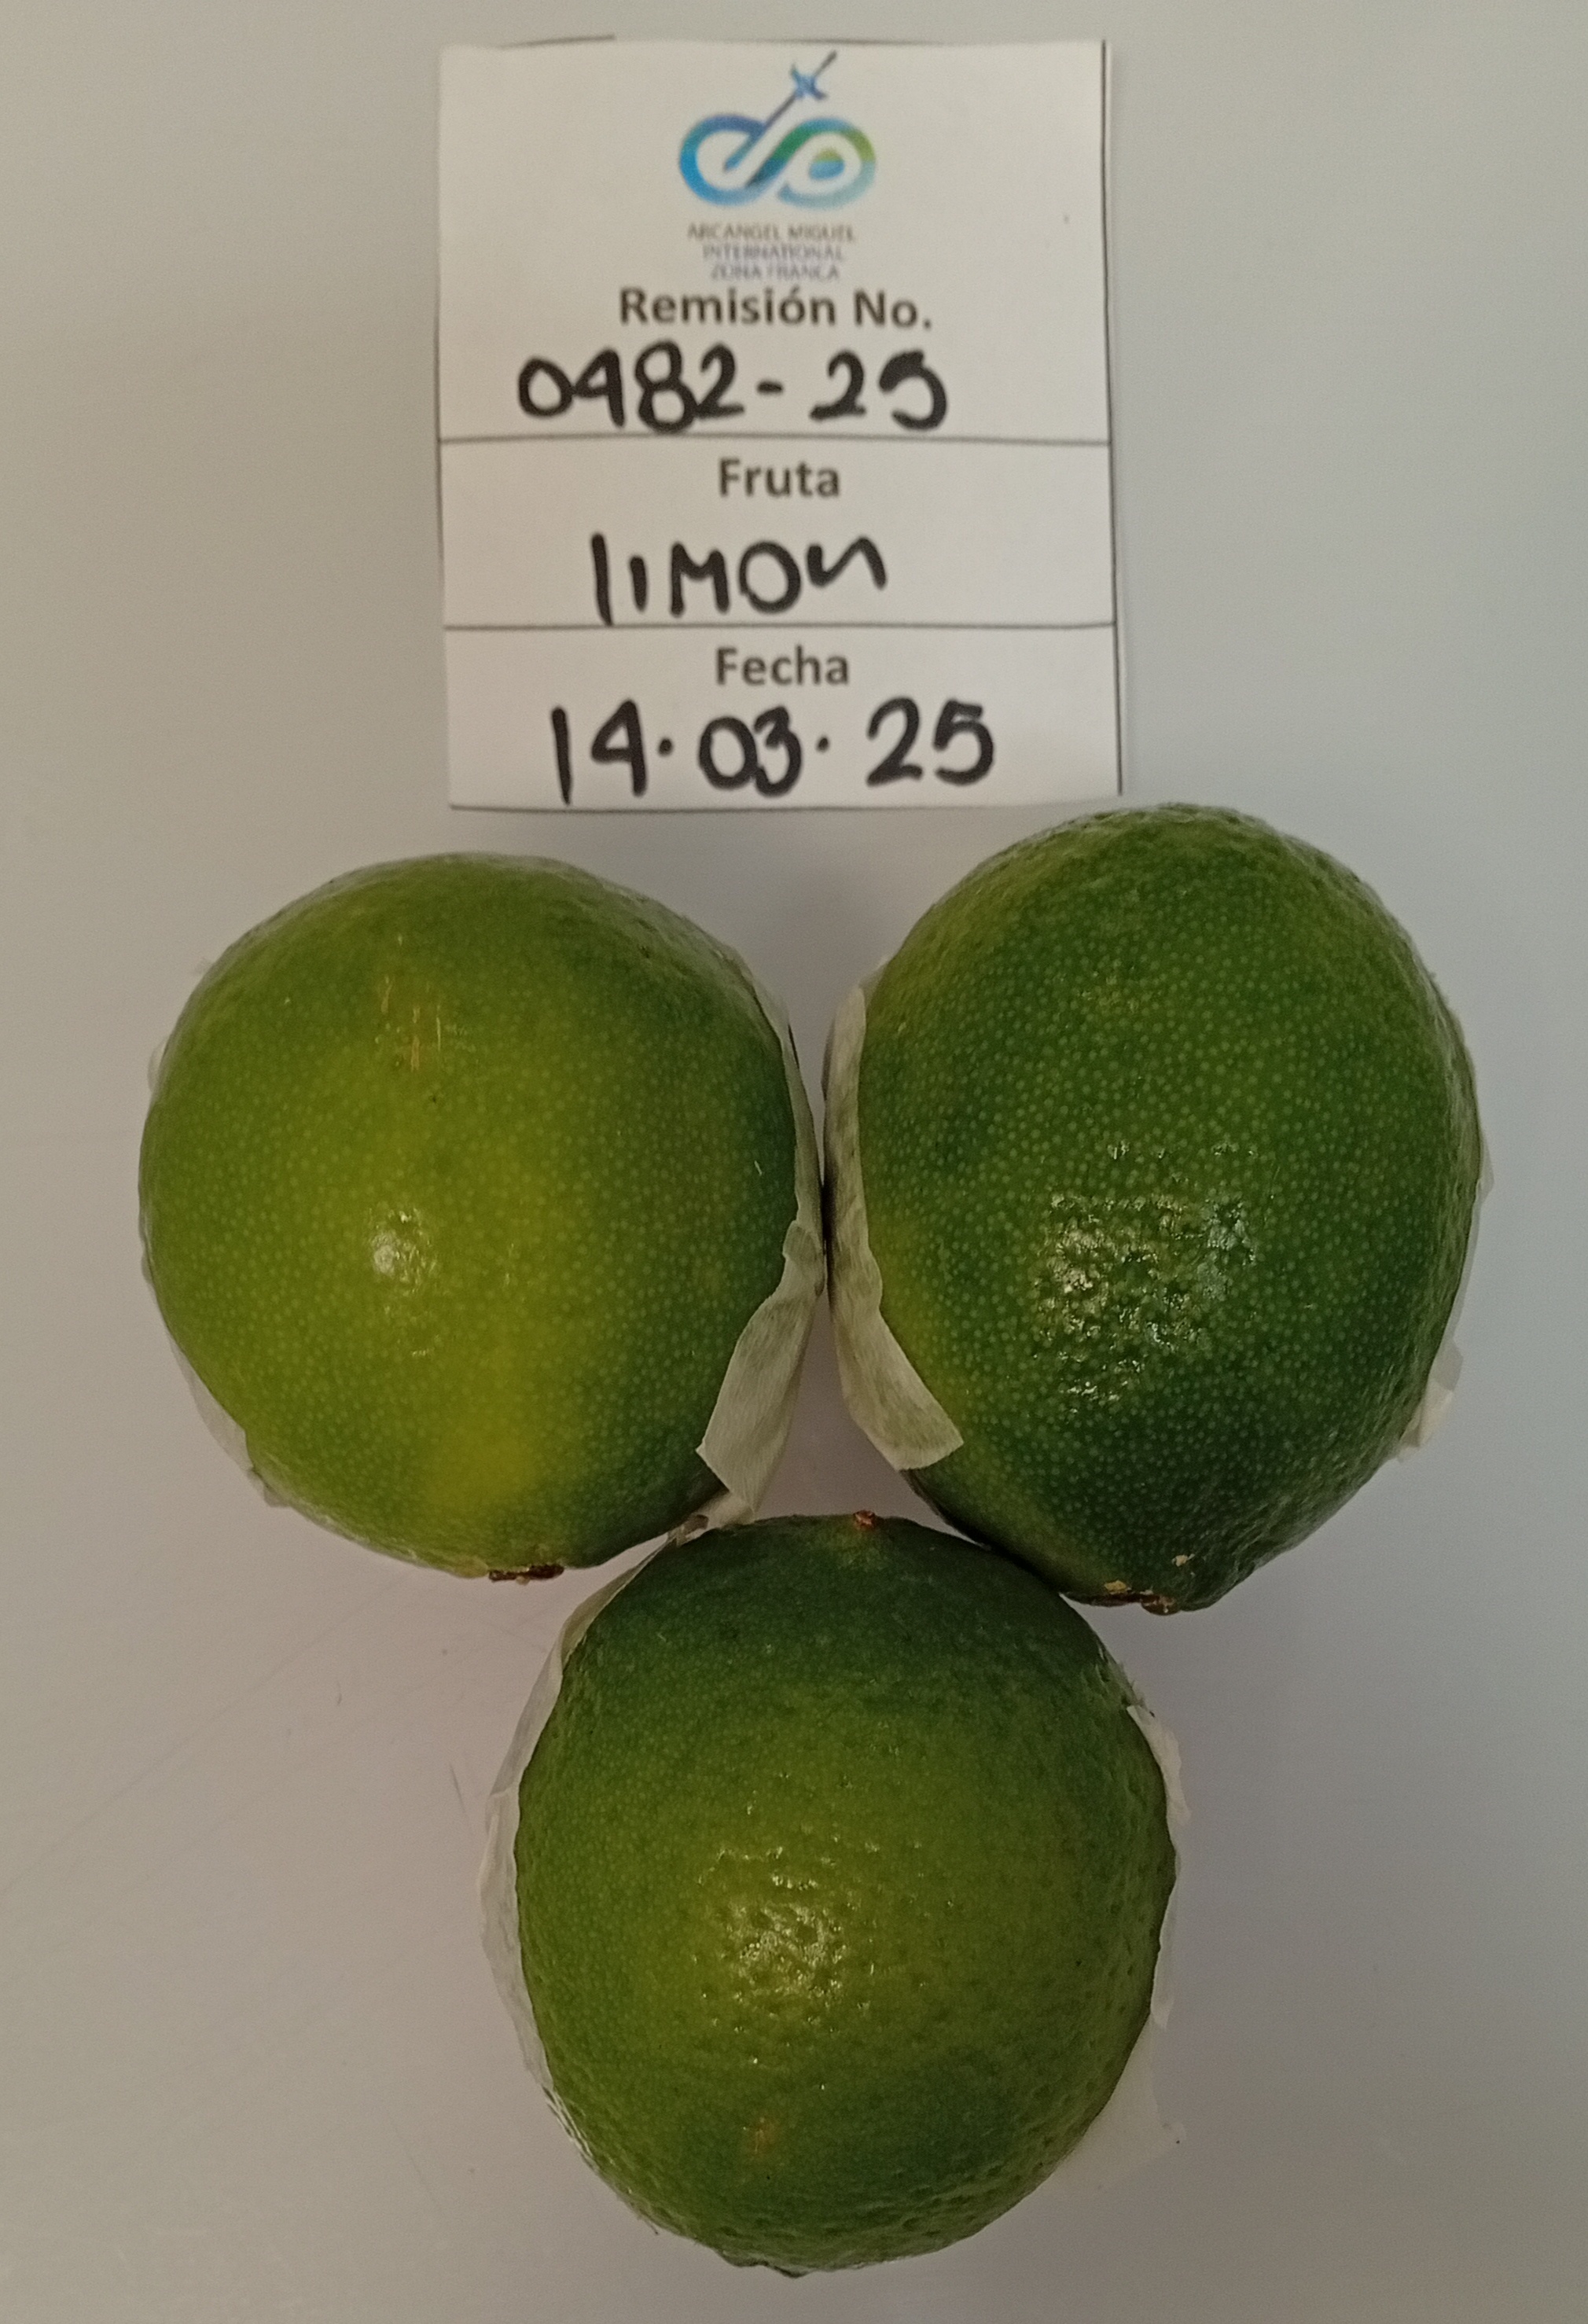 ARCANGEL MIGUEL
INTERNATIONAL
ZONA FRANCA
Remisión No.
0482-25
Fruta
limon
Fecha
14.03.25